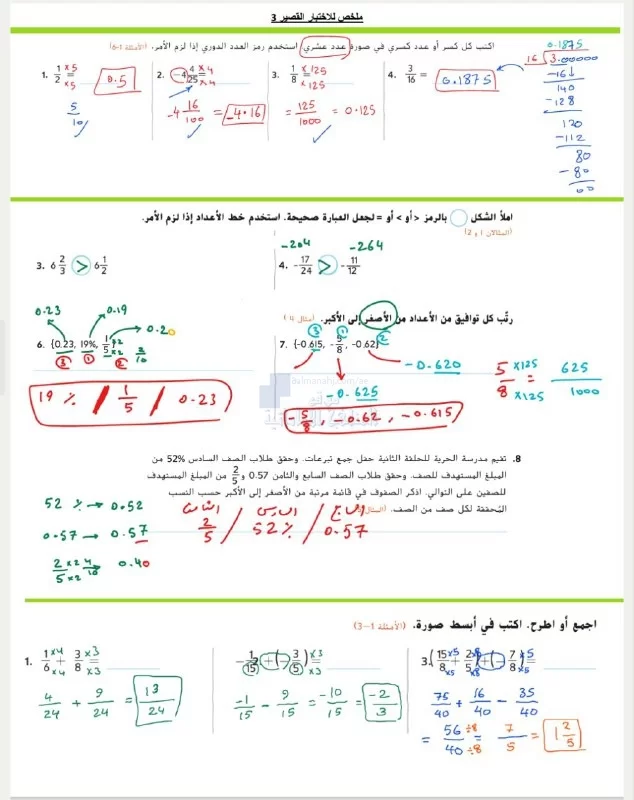 ملخص للاختبار القصير 3
اكتب كل كسر أو عدد كسري في صورة عدد عشري استخدم رمز العدد الدوري إذا لزم الأمر. (الأمثلة 1-6)
1. 1/2 ×5 ×5 = 0.5
5/10
2. -4 4/25 ×4 ×4 =
-4 16/100 = -4.16
3. 1/8 ×125 ×125
= 125/1000 = 0.125
4. 3/16 = 0.1875
0.1875
16 3.00000
-16↓
140
-128
120
-112
80
-80
00
املأ الشكل ◯ بالرمز < أو > أو = لجعل العبارة صحيحة. استخدم خط الأعداد إذا لزم الأمر.
(المثالان 1 و 2)
3. 6 2/3 > 6 1/2
-204 -264
4. -17/24 > -11/12
رتّب كل توافيق من الأعداد من الأصغر إلى الأكبر. (مثال 4)
0.23 0.19 0.20
6. {0.23, 19%, 1/5} ×2 ×2 2/10
3 1 2
19 % / 1/5 / 0.23
3 1 2
7. {-0.615, -5/8, -0.62}
-0.620
-0.625
5/8 ×125 ×125 = 625/1000
-5/8, -0.62, -0.615
almanahj.com/ae
8. تقيم مدرسة الحرية للحلقة الثانية حفل جمع تبرعات. وحقق طلاب الصف السادس 52% من
المبلغ المستهدف للصف. وحقق طلاب الصف السابع والثامن 0.57 و 2/5 من المبلغ المستهدف
للصفين على التوالي. اذكر الصفوف في قائمة مرتبة من الأصغر إلى الأكبر حسب النسب
المحققة لكل صف من الصف.
52 % → 0.52
0.57 → 0.57
2/5 ×2 ×2 4/10 → 0.40
الثامن / السادس / السابع
2/5 / 52% / 0.57
اجمع أو اطرح. اكتب في أبسط صورة. (الأمثلة 1-3)
1. 1/6 ×4 ×4 + 3/8 ×3 ×3 =
4/24 + 9/24 = 13/24
-1/15 + (-3/5) ×3 ×3 =
-1/15 - 9/15 = -10/15 = -2/3
3. (15/8 ×5 ×5 + 2/5 ×8 ×8) + (-7/8) ×5 ×5
75/40 + 16/40 - 35/40
= 56/40 ÷8 ÷8 = 7/5 = 1 2/5